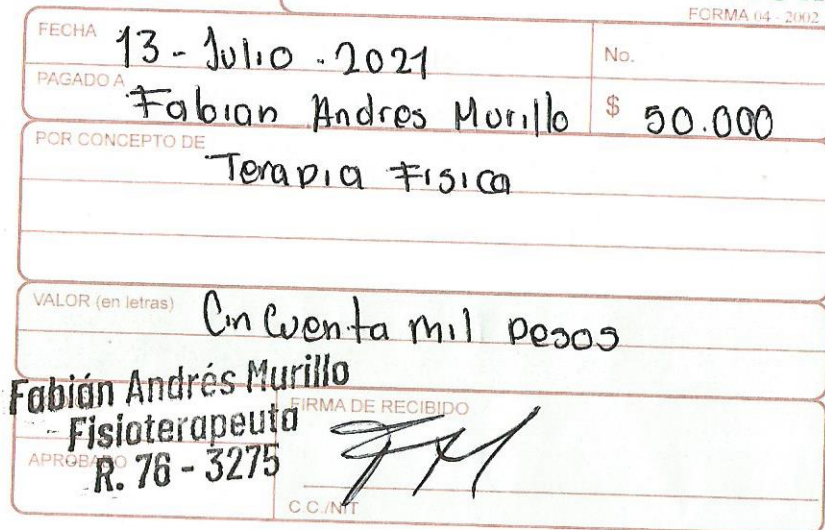 FORMA 04 - 2002
FECHA 13 - Julio - 2021
No.
PAGADO A Fabian Andres Murillo $ 50.000
POR CONCEPTO DE Terapia Fisica
VALOR (en letras) Cincuenta mil pesos
Fabián Andrés Murillo
Fisioterapeuta
R. 76 - 3275
APROBADO
FIRMA DE RECIBIDO
C.C./NIT